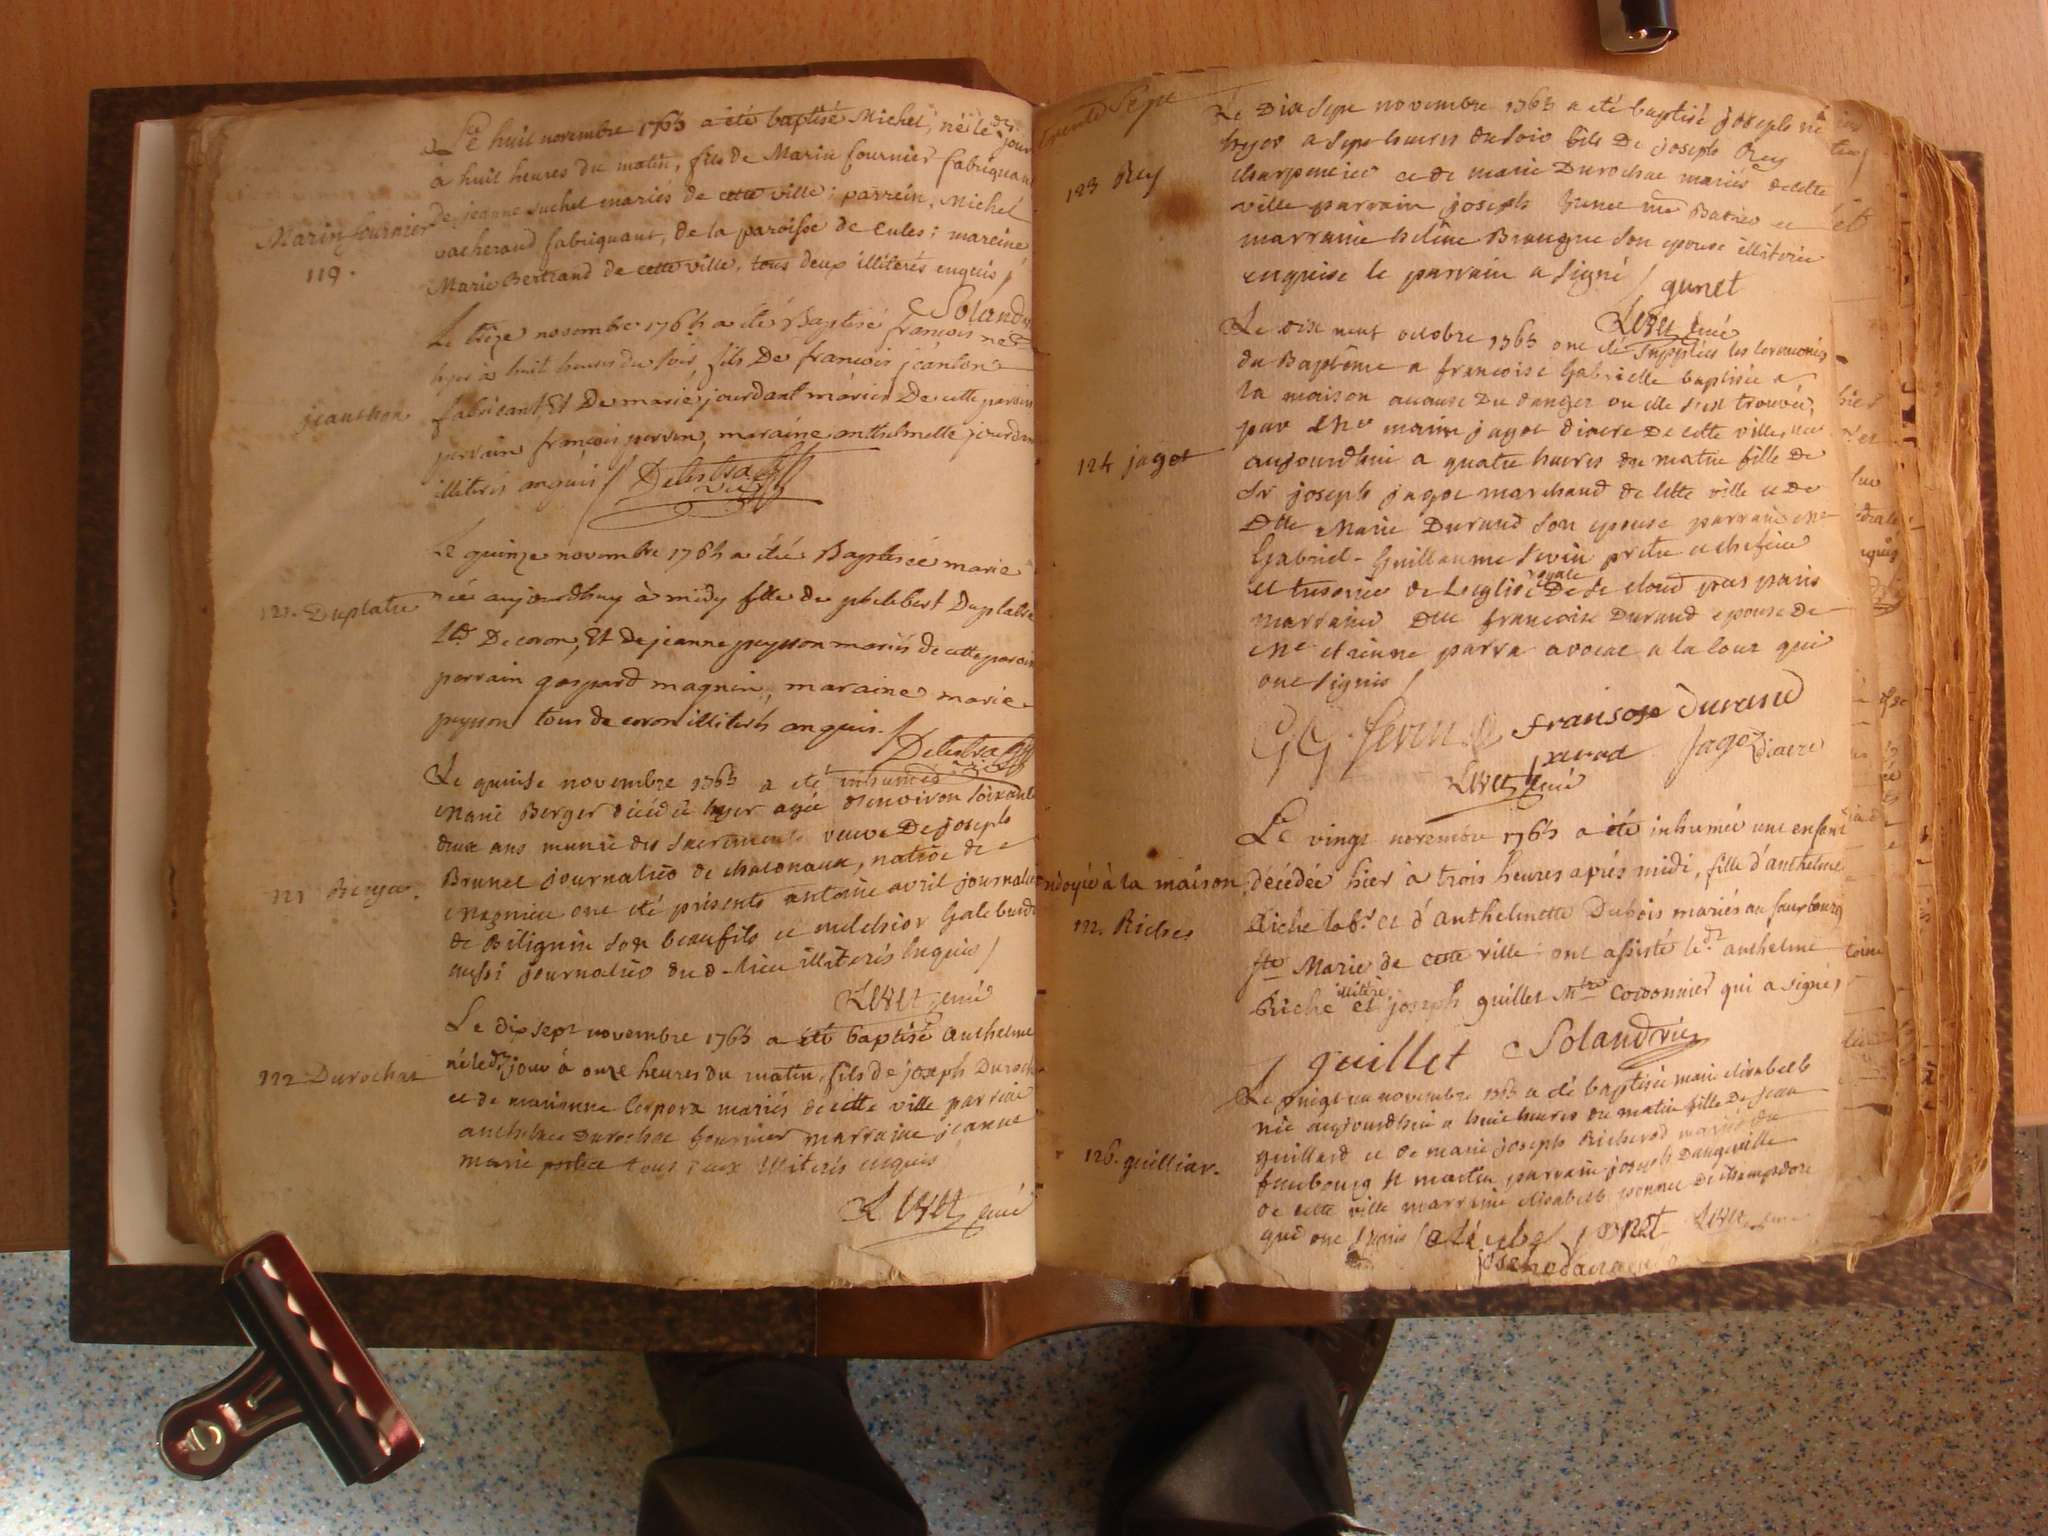 Le huit novembre 1763 a été baptisé Michel, né le dt jour
à huit heures du matin, fils de Marin fournier fabriquant
de jeanne suchet mariés de cette ville ; parrein, Michel
Marin fournier
vacheraud fabriquant, de la paroisse de Cules ; mareine
119.
Marie Bertrand de cette ville, tous deux illiterés enquis /
Solandr
Le treze novembre 1763 a été Baptisé françois né
hyer à huit heures du soir, fils De françois jeanton
jeanthon
fabricant, Et De marie jourdant mariés De cette parois
parrain françois perrin, maraine anthelmette jourdan
illiterés anquis / Delestra
Le quinze novembre 1763 a été Baptisée marie
121. Duplatre
née aujourdhuy à midy fille de philebert Duplatre
De coron, Et de jeanne peysson mariés de cette parois
parrain gaspard magnin, maraine marie
peysson tous de coron illiterés anquis. / Delestra
Le quinse novembre 1763 a eté inhumée
Marie Berger décédée hyer agée d'environ soixante
deux ans munie des sacrements veuve De joseph
121 Berger.
Brunet journalier de chatonaux, native de
Magnieu ont eté présents antoine avril journalier
de Bilignin son beaufils et melchior Galeburd
aussi journalier dud. lieu illiterés enquis /
curé
Le dix sept novembre 1763 a été baptisé Anthelme
122 Durochat
né led. jour à onze heures du matin, fils de joseph Duroch
et de marianne Cerpora mariés de cette ville parrain
anthelme Durochat fournier marraine jeanne
marie tous deux illiterés enquis
curé
trente Sept
Le Dix Sept novembre 1763 a eté baptisé joseph né
hyer a sept heures du soir fils De joseph Rey
123 Rey
charpentier et de marie Durochat mariés de cette
ville parrain joseph Gunet
marraine heleine son epouse illiterée
enquise le parrain a signé / gunet
curé
Le dix neuf octobre 1763 ont eté supplées les ceremonies
du Baptême a francoise Gabrielle baptisée a
la maison acause Du danger ou elle s'est trouvée,
par Me marin jagot diacre De cette ville, née
124 jagot
aujourdhui a quatre heures du matin fille de
Sr joseph jagot marchand de cette ville et De
Dlle Marie Durand son epouse parrain Me
Gabriel-Guillaume Sevin pretre et chefcier
et tresorier de l'eglise royale De St cloud pres paris
marraine Dlle francoise Durand epouse De
Me etienne parra avocat a la Cour qui
ont signés /
G G Sevin françose Durand
parra jagot diacre
curé
Le vingt novembre 1763 a été inhumée une enfant
ondoyée à la maison, décédée hier à trois heures aprés midi, fille d'anthelme
122. Riches
Riche labr. et d'anthelmette Dubois mariés au faurbourg
ste Marie de cette ville ont assisté le dt anthelme
Riche illitéré et joseph guillet Mtre cordonnier qui a signé,
/ guillet Solandrier
Le vingt un novembre 1763 a eté baptisée marie elisabeth
née aujourdhui a huit heures du matin fille De jean
126. guilliar.
guillard et de marie joseph Richerod mariés du
faubourg st martin parrain joseph Dangeville
de cette ville marraine elisabeth ponnet De champdore
qui ont signés